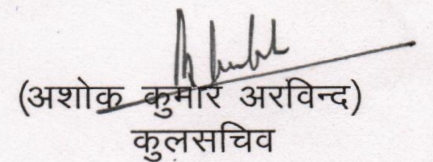 (अशोक कुमार अरविन्द)
कुलसचिव